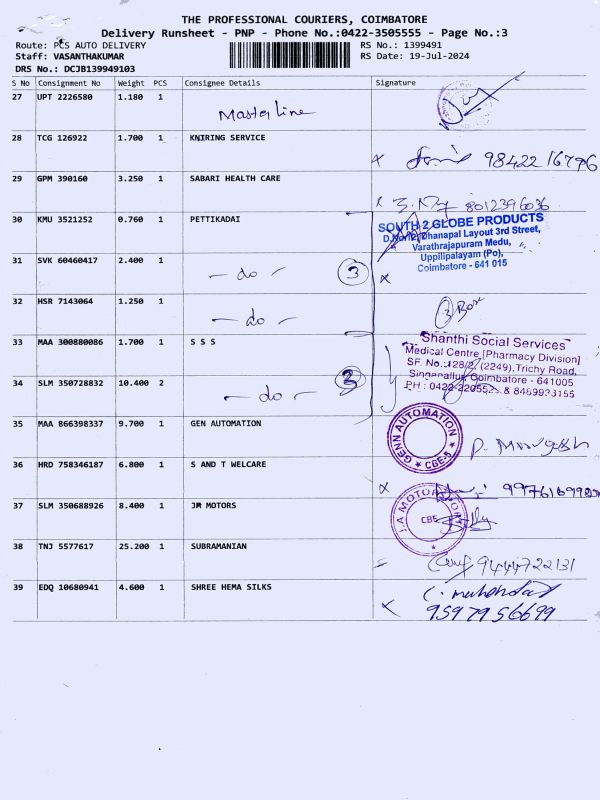 THE PROFESSIONAL COURIERS, COIMBATORE
Delivery Runsheet - PNP - Phone No.:0422-3505555 - Page No.:3
Route: PCS AUTO DELIVERY
RS No.: 1399491
Staff: VASANTHAKUMAR
RS Date: 19-Jul-2024
DRS No.: DCJB139949103
S No Consignment No Weight PCS Consignee Details Signature
27 UPT 2226580 1.180 1 Masterline
28 TCG 126922 1.700 1 KNIRING SERVICE
98422 16796
29 GPM 390160 3.250 1 SABARI HEALTH CARE
8012396036
30 KMU 3521252 0.760 1 PETTIKADAI
SOUTH 2 GLOBE PRODUCTS
Dhanapal Layout 3rd Street,
Varathrajapuram Medu,
Uppilipalayam (Po),
Coimbatore - 641 015
31 SVK 60460417 2.400 1 - do - 3 X
32 HSR 7143064 1.250 1 - do - 3 Box
33 MAA 300880086 1.700 1 S S S
Shanthi Social Services
Medical Centre [Pharmacy Division]
SF. No.:128/2, (2249), Trichy Road,
Singanallur, Coimbatore - 641005
PH : 0422-2205523 & 8489923155
34 SLM 350728832 10.400 2 - do -
35 MAA 866398337 9.700 1 GEN AUTOMATION
GENN AUTOMATION
CBE-5
36 HRD 758346187 6.800 1 S AND T WELCARE
X
37 SLM 350688926 8.400 1 JM MOTORS
CBE
38 TNJ 5577617 25.200 1 SUBRAMANIAN
9444722131
39 EDQ 10680941 4.600 1 SHREE HEMA SILKS
X 9597956699